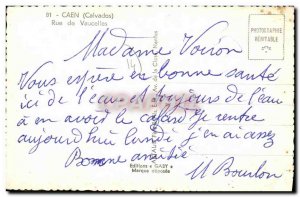 81 - CAEN (Calvados)
Rue de Vaucelles
PHOTOGRAPHIE
VÉRITABLE
Madame Voiron
Vous espère en bonne santé
ici de l'eau et toujours de l'eau
à en avoir le cafard je rentre
aujourd'hui lundi j'en ai assez
Bonne amitié
M Bourlon
Editions « GABY »
Marque déposée